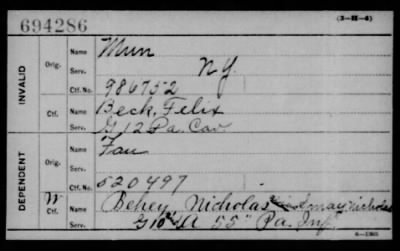 694286
(3-H-6)
INVALID
Orig.
Name Mun
Serv. N.Y.
Ctf. No. 986752
Ctf.
Name Beck, Felix
Serv. G 12 Pa. Cav
DEPENDENT
Orig.
Name Fau
Serv.
Ctf. No. 520497
W
Ctf.
Name Behey Nicholas Nicholas
Serv. 55" Pa. Inf